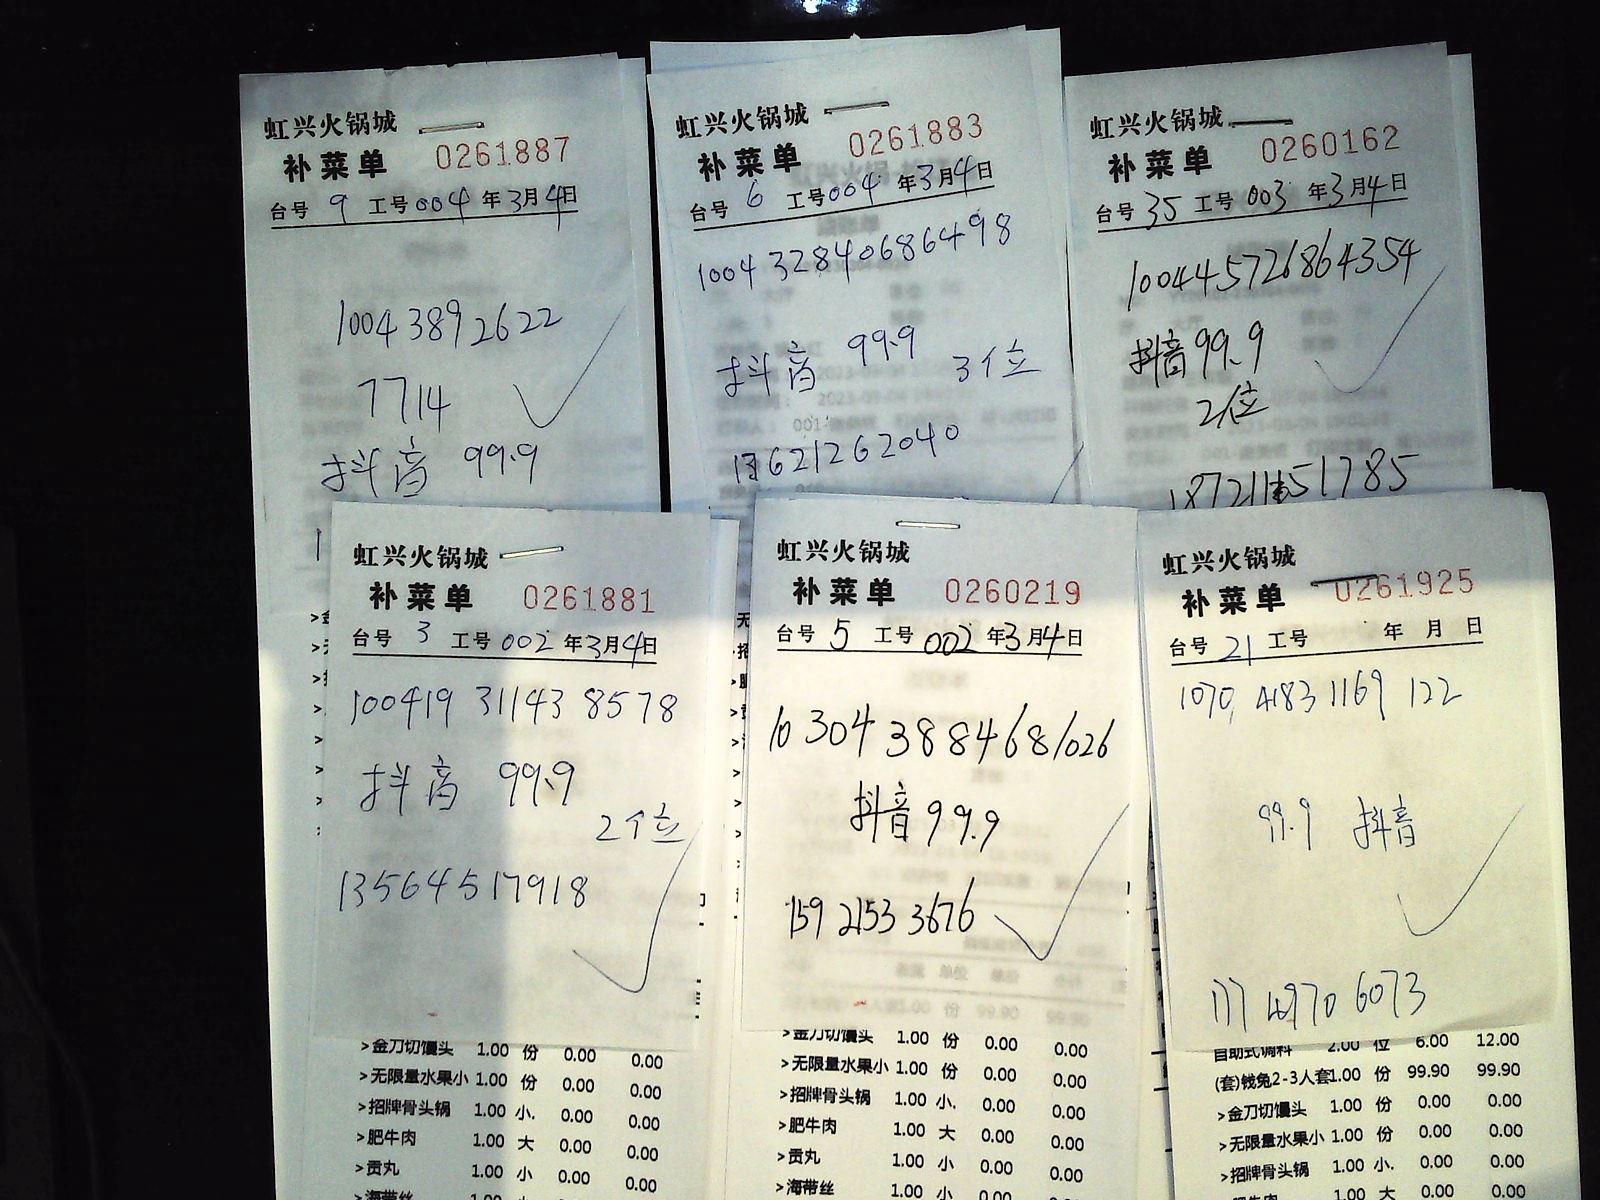 虹兴火锅城
补菜单 0261887
台号 9 工号 004 年 3月 4日
10043892622
7714
抖音 99.9
虹兴火锅城
补菜单 0261883
台号 6 工号 004 年 3月 4日
100432840686498
抖音 99.9 3个位
13621262040
虹兴火锅城
补菜单 0260162
台号 35 工号 003 年 3月 4日
100445726864354
抖音 99.9
2个位
虹兴火锅城
补菜单 0261881
台号 3 工号 002 年 3月 4日
100419 31143 8578
抖音 99.9
2个位
13564517918
>金刀切馒头 1.00 份 0.00 0.00
>无限量水果小 1.00 份 0.00 0.00
>招牌骨头锅 1.00 小. 0.00 0.00
>肥牛肉 1.00 大 0.00 0.00
>贡丸 1.00 小 0.00 0.00
>海带丝
虹兴火锅城
补菜单 0260219
台号 5 工号 002 年 3月 4日
103043884681026
抖音 99.9
159 2153 3676
>金刀切馒头 1.00 份 0.00 0.00
>无限量水果小 1.00 份 0.00 0.00
>招牌骨头锅 1.00 小. 0.00 0.00
>肥牛肉 1.00 大 0.00 0.00
>贡丸 1.00 小 0.00 0.00
>海带丝 1.00 小 0.00 0.00
虹兴火锅城
补菜单 0261925
台号 21 工号 年 月 日
1070 4183 1169 122
99.9 抖音
177 4970 6073
自助式调料 2.00 位 6.00 12.00
(套)钱兔2-3人套1.00 份 99.90 99.90
>金刀切馒头 1.00 份 0.00 0.00
>无限量水果小 1.00 份 0.00 0.00
>招牌骨头锅 1.00 小. 0.00 0.00
>肥牛肉 1.00 大 0.00 0.00